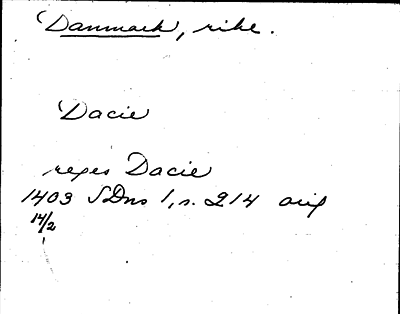 Danmark, rike.
Dacie
reges Dacie
1403 SDns 1, s. 214 orig
14/2